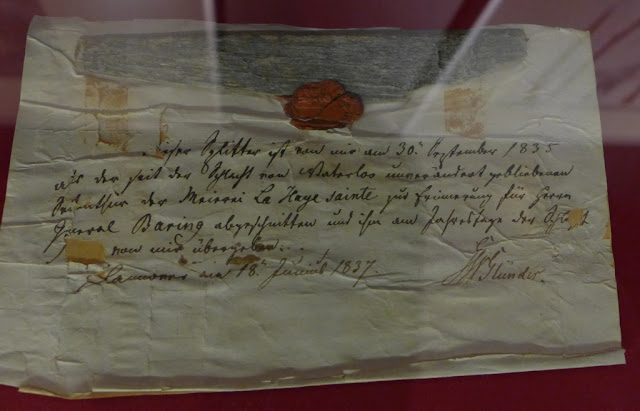 Dieser Splitter ist von mir am 30. September 1835
aus der seit der Schlacht von Waterloo unverändert gebliebenen
der Meierei La Haye sainte zur Erinnerung für Herrn
General Baring abgeschnitten und ihm am Jahrestage der Schlacht
von mir übergeben.
Hannover am 18. Junius 1837.
Glünder.